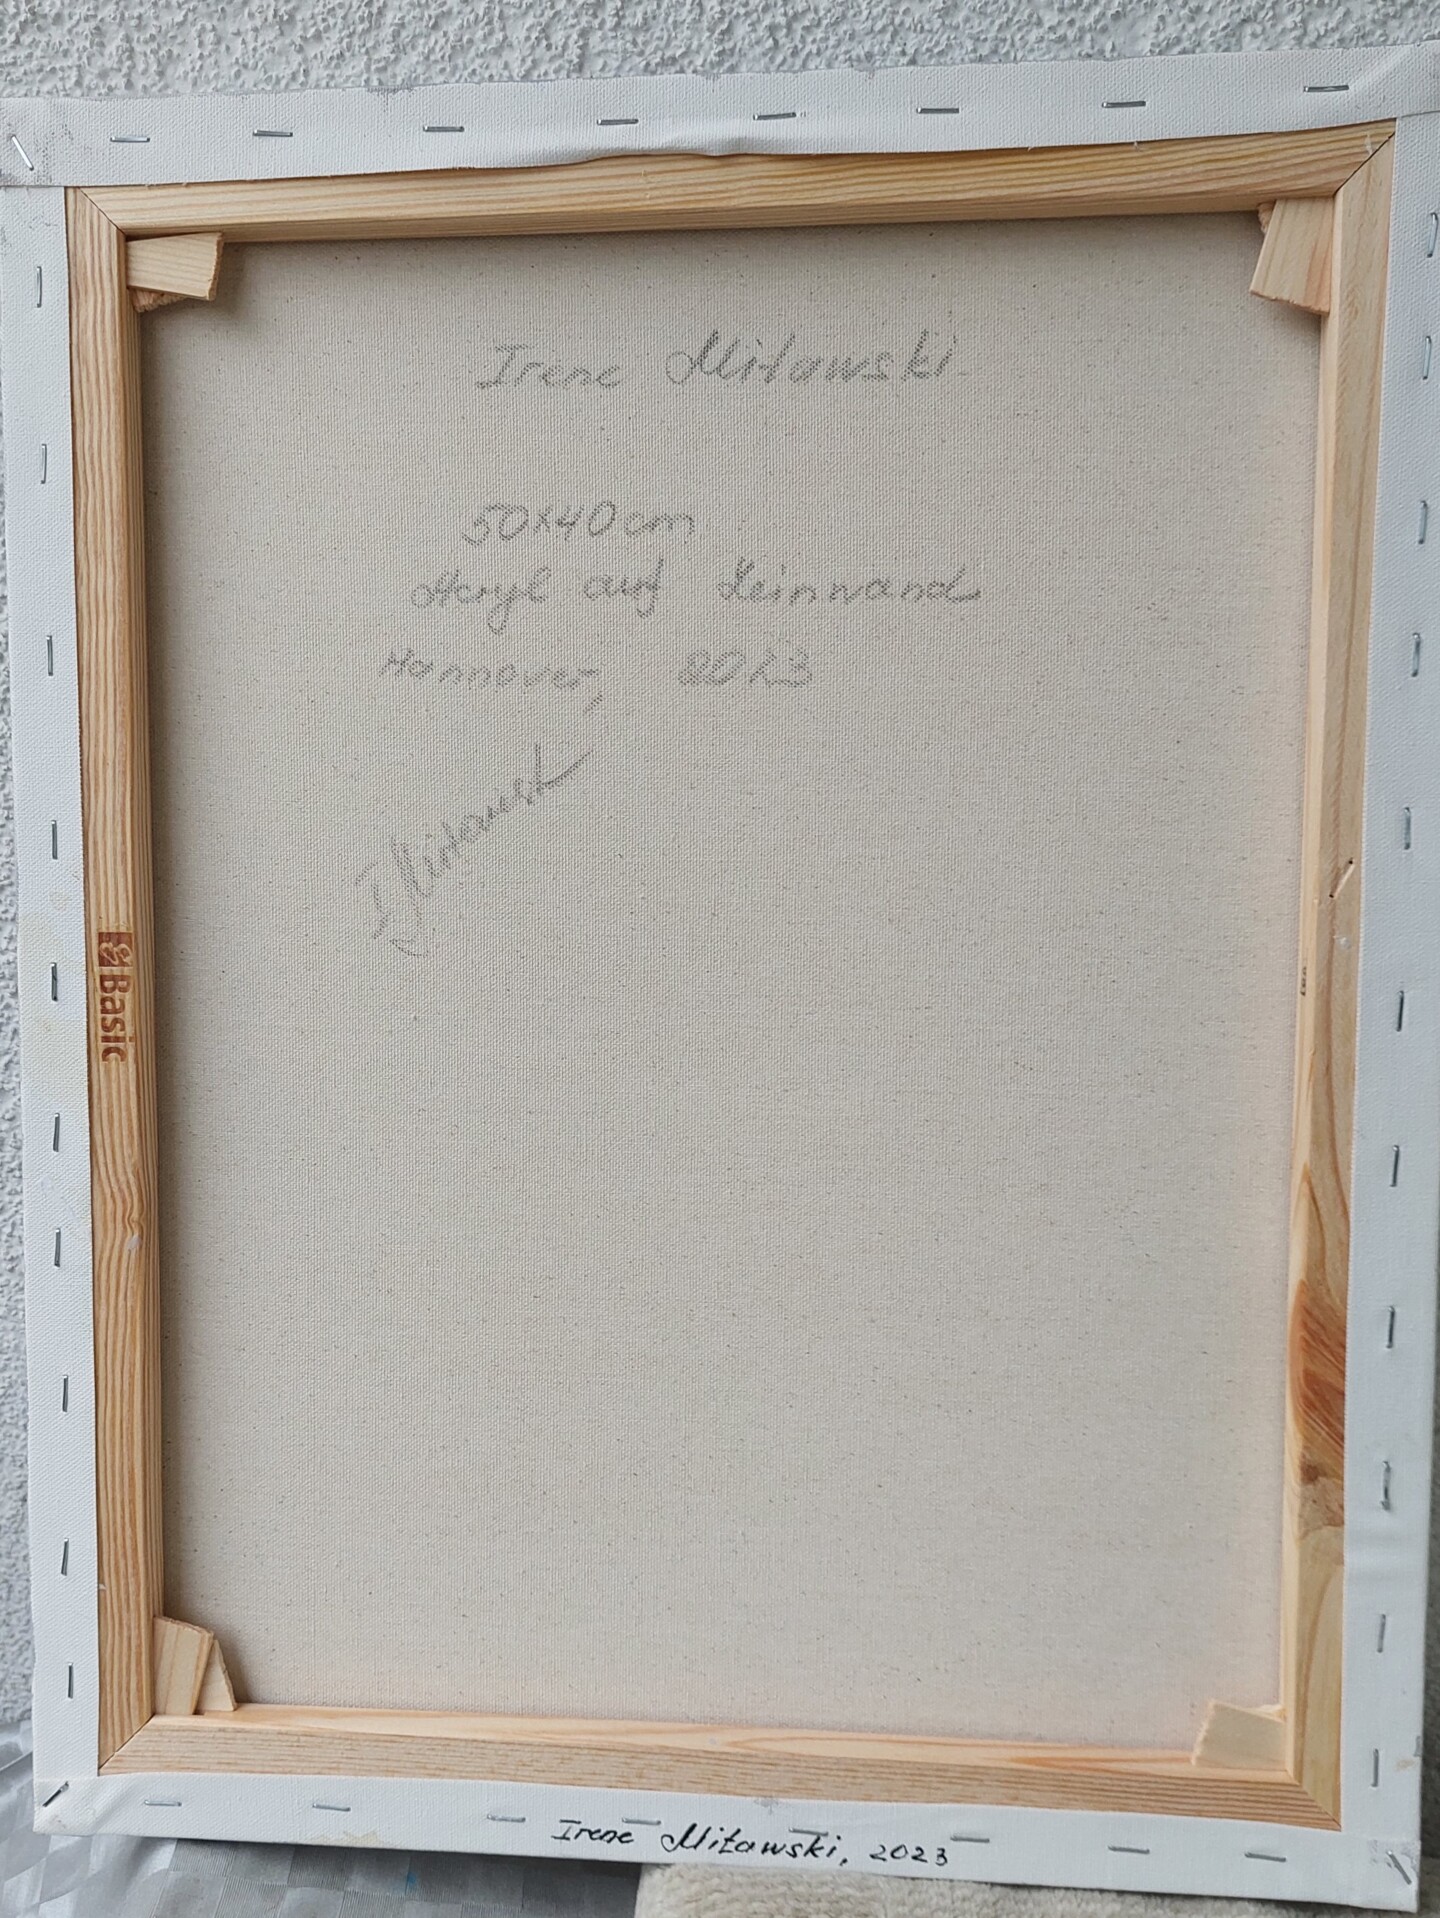 Irene Mitawski
50x40 cm
Acryl auf Leinwand
Hannover, 2023
I Mitawski
Basic
Irene Mitawski, 2023